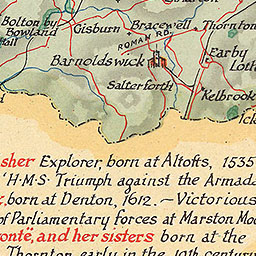 Bolton by Bowland
Gisburn
Bracewell
Thornton
ROMAN RD.
Barnoldswick
Earby
Salterforth
Kelbrook
sher Explorer, born at Altofts, 1535
H·M·S· Triumph against the Armada
born at Denton, 1612. — Victorious
of Parliamentary forces at Marston Moo
ontë, and her sisters born at the
Thornton early in the 19th century